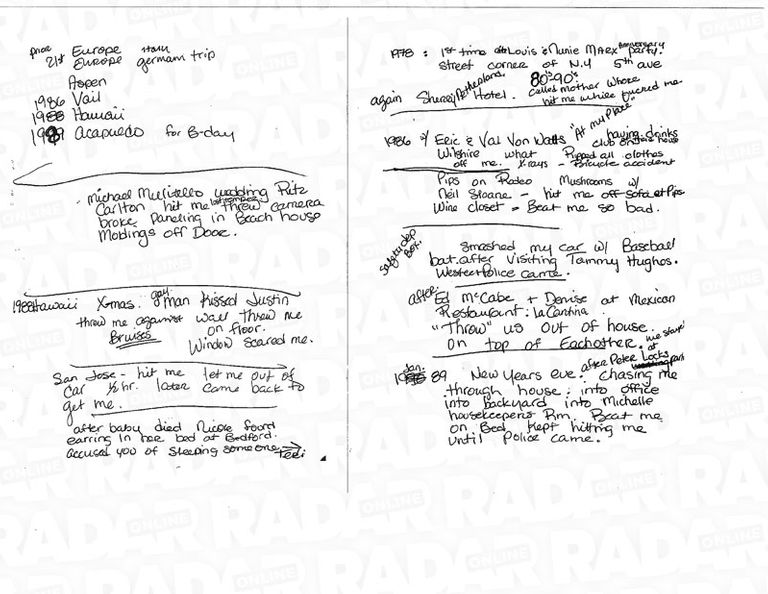 price Europe
21st Europe german trip
Aspen
1986 Vail
1988 Hawaii
1989 Acapulco for B-day
michael Mulitello wedding Ritz
Carlton hit me threw camera
broke Paneling in Beach house
Moldings off Door.
1988 Hawaii X-mas. gay man kissed Justin
threw me against wall threw me
on floor.
Bruises
Window scared me.
San Jose - hit me let me out of
car ½ hr. later came back to
get me.
after baby died Nicole found
earring in her bed at Bedford.
accused you of sleeping someone
Teri
1978: 1st time after Louis & Nunie Marx Anniversary party.
street corner of N.Y 5th ave
80's 90's
again Sherry Netherland Hotel. called mother whore
hit me while fucked me.
1986 w/ Eric & Val Von Watts "At my Place" having drinks
Wilshire what Ripped all clothes
off me. Xrays - Bicycle accident
Pips on Rodeo Mushrooms w/
Neil Sloane - hit me off sofa at Pips
Wine closet - Beat me so bad.
safety dep Box.
smashed my car w/ Baseball
bat after visiting Tammy Hughes.
Westec Police came.
after: Ed McCabe + Denise at Mexican
Restaurant: La Cantina
"Threw" us out of house.
on top of Eachother.
Jan. 89 New Years eve: after Peter Locks chasing me
through house: into office
into backyard into Michelle
housekeepers Rm. Beat me
on Bed kept hitting me
until Police came.
RADAR ONLINE